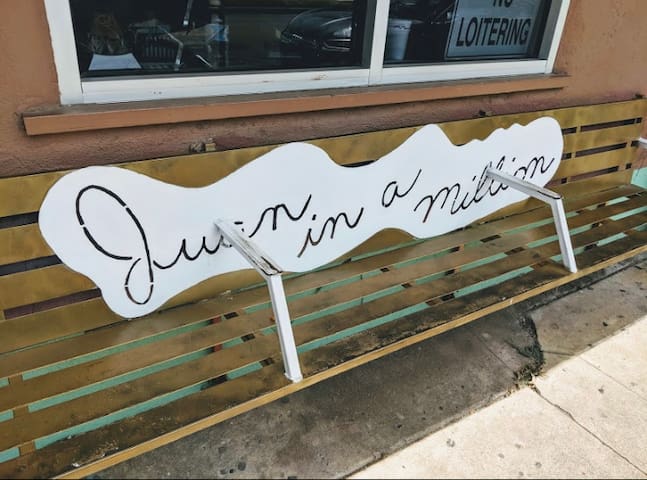 NO
LOITERING
Juan in a million